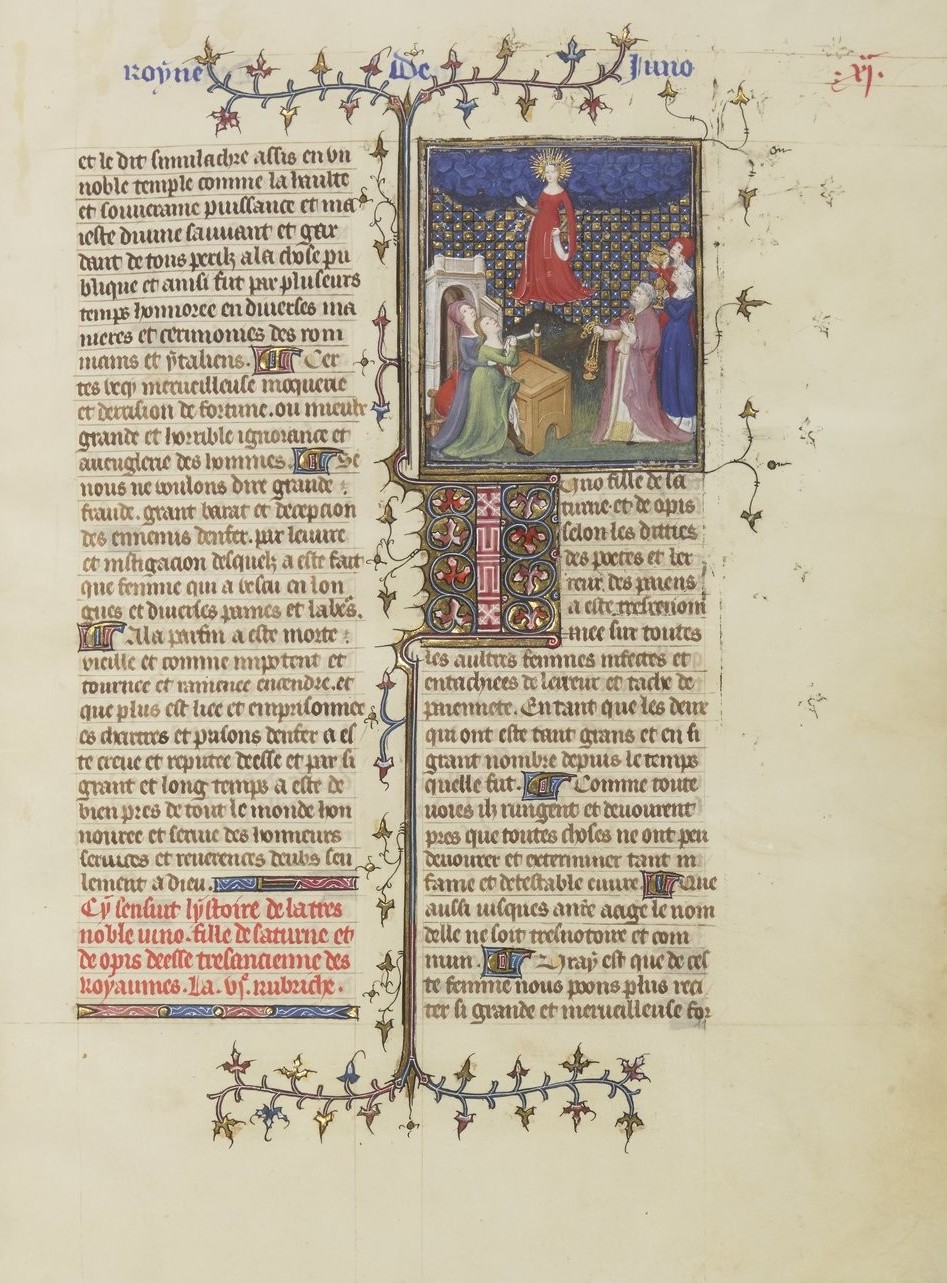 royne de Juno
.xj.
et le dit simulachre assis en un
noble temple comme la haulte
et souveraine puissance et ma
ieste divine sauvant et gar
dant de tous perilz a la chose pu
blique et ainsi fut par pluseurs
temps honoree en diverses ma
nieres et cerimonies des rom
mains et ytaliens. Cer
tes vecy merveilleuse moquerie
et derrision de fortune. ou mieulx
grande et horrible ignorance et
aveuglerie des hommes. Se
nous ne voulons dire grande
fraude. grant barat et decepcion
des ennemis denfer. par leuvre
et instigacion desquelz a este fait
que femme qui a vescu en lon
gues et diverses paines et labes.
A la parfin a este morte
vieille et comme impotent et
tournee et ramenee en cendre. et
que plus est liee et emprisonnee
es chartres et prisons denfer a es
te creue et reputee deesse et par si
grant et long temps a este de
bien pres de tout le monde hon
nouree et servie des honneurs
services et reverences deubs seu
lement a dieu.
Cy sensuit lystoire de la tres
noble iuno. fille de saturne et
de opis deesse tresancienne des
Royaumes. La. vᵉ. rubriche.
Iuno fille de sa
turne et de opis
selon les ditties
des poetes et ler
reur des paiens
a este tresrenom
mee sur toutes
les aultres femmes infectes et
entachiees de lerreur et tache de
paiennete. En tant que les deux
qui ont este tant grans et en si
grant nombre depuis le temps
quelle fut. Comme toute
voies ilz rungent et devourent
pres que toutes choses ne ont peu
devourer et exterminer tant in
fame et detestable euvre. Que
aussi iusques a nostre aage le nom
delle ne soit tresnotoire et com
mun. Vray est que de ces
te femme nous poons plus reci
ter si grande et merveilleuse for